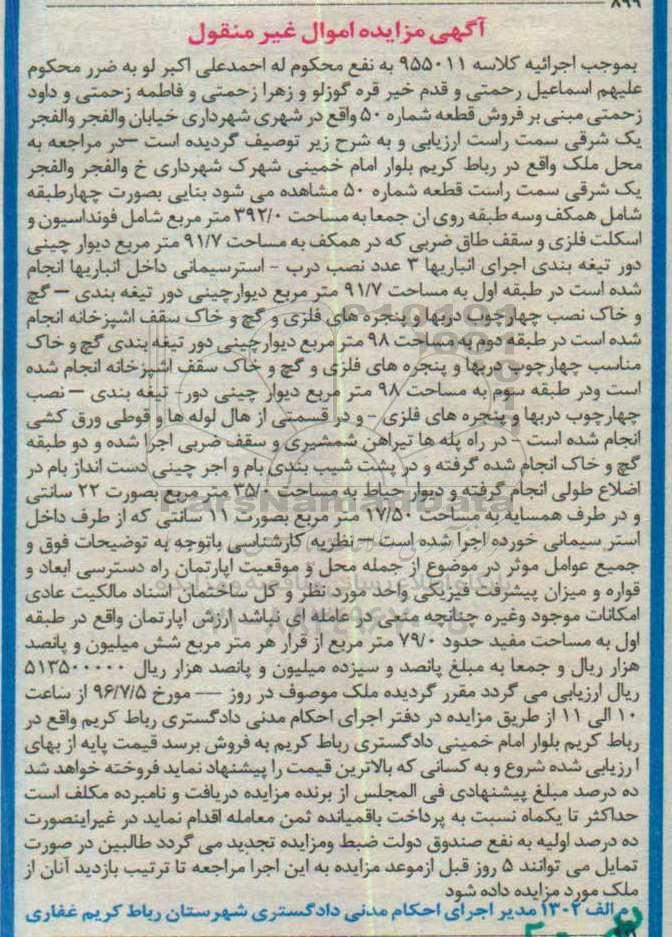 ۸۹۹
آگهی مزایده اموال غیر منقول
بموجب اجرائیه کلاسه ۹۵۵۰۱۱ به نفع محکوم له احمدعلی اکبر لو به ضرر محکوم
علیهم اسماعیل رحمتی و قدم خیر قره گوزلو و زهرا زحمتی و فاطمه زحمتی و داود
زحمتی مبنی بر فروش قطعه شماره ۵۰ واقع در شهری شهرداری خیابان والفجر والفجر
یک شرقی سمت راست ارزیابی و به شرح زیر توصیف گردیده است –در مراجعه به
محل ملک واقع در رباط کریم بلوار امام خمینی شهرک شهرداری خ والفجر والفجر
یک شرقی سمت راست قطعه شماره ۵۰ مشاهده می شود بنایی بصورت چهارطبقه
شامل همکف وسه طبقه روی ان جمعا به مساحت ۳۹۲/۰ متر مربع شامل فونداسیون و
اسکلت فلزی و سقف طاق ضربی که در همکف به مساحت ۹۱/۷ متر مربع دیوار چینی
دور تیغه بندی اجرای انباریها ۳ عدد نصب درب - استرسیمانی داخل انباریها انجام
شده است در طبقه اول به مساحت ۹۱/۷ متر مربع دیوارچینی دور تیغه بندی – گچ
و خاک نصب چهارچوب دربها و پنجره های فلزی و گچ و خاک سقف اشپزخانه انجام
شده است در طبقه دوم به مساحت ۹۸ متر مربع دیوارچینی دور تیغه بندی گچ و خاک
مناسب چهارچوب دربها و پنجره های فلزی و گچ و خاک سقف اشپزخانه انجام شده
است ودر طبقه سوم به مساحت ۹۸ متر مربع دیوار چینی دور- تیغه بندی – نصب
چهارچوب دربها و پنجره های فلزی - و در قسمتی از هال لوله ها و قوطی ورق کشی
انجام شده است - در راه پله ها تیراهن شمشیری و سقف ضربی اجرا شده و دو طبقه
گچ و خاک انجام شده گرفته و در پشت شیب بندی بام و اجر چینی دست انداز بام در
اضلاع طولی انجام گرفته و دیوار حیاط به مساحت ۳۵/۰ متر مربع بصورت ۲۲ سانتی
و در طرف همسایه به مساحت ۱۷/۵۰ متر مربع بصورت ۱۱ سانتی که از طرف داخل
استر سیمانی خورده اجرا شده است – نظریه کارشناسی باتوجه به توضیحات فوق و
جمیع عوامل موثر در موضوع از جمله محل و موقعیت اپارتمان راه دسترسی ابعاد و
قواره و میزان پیشرفت فیزیکی واحد مورد نظر و کل ساختمان اسناد مالکیت عادی
امکانات موجود وغیره چنانچه منعی در عامله ای نباشد ارزش اپارتمان واقع در طبقه
اول به مساحت مفید حدود ۷۹/۰ متر مربع از قرار هر متر مربع شش میلیون و پانصد
هزار ریال و جمعا به مبلغ پانصد و سیزده میلیون و پانصد هزار ریال ۵۱۳۵۰۰۰۰۰
ریال ارزیابی می گردد مقرر گردیده ملک موصوف در روز –– مورخ ۹۶/۷/۵ از ساعت
۱۰ الی ۱۱ از طریق مزایده در دفتر اجرای احکام مدنی دادگستری رباط کریم واقع در
رباط کریم بلوار امام خمینی دادگستری رباط کریم به فروش برسد قیمت پایه از بهای
ارزیابی شده شروع و به کسانی که بالاترین قیمت را پیشنهاد نماید فروخته خواهد شد
ده درصد مبلغ پیشنهادی فی المجلس از برنده مزایده دریافت و نامبرده مکلف است
حداکثر تا یکماه نسبت به پرداخت باقمیانده ثمن معامله اقدام نماید در غیراینصورت
ده درصد اولیه به نفع صندوق دولت ضبط ومزایده تجدید می گردد طالبین در صورت
تمایل می توانند ۵ روز قبل ازموعد مزایده به این اجرا مراجعه تا ترتیب بازدید آنان از
ملک مورد مزایده داده شود
م الف ۱۳۰۲ مدیر اجرای احکام مدنی دادگستری شهرستان رباط کریم غفاری